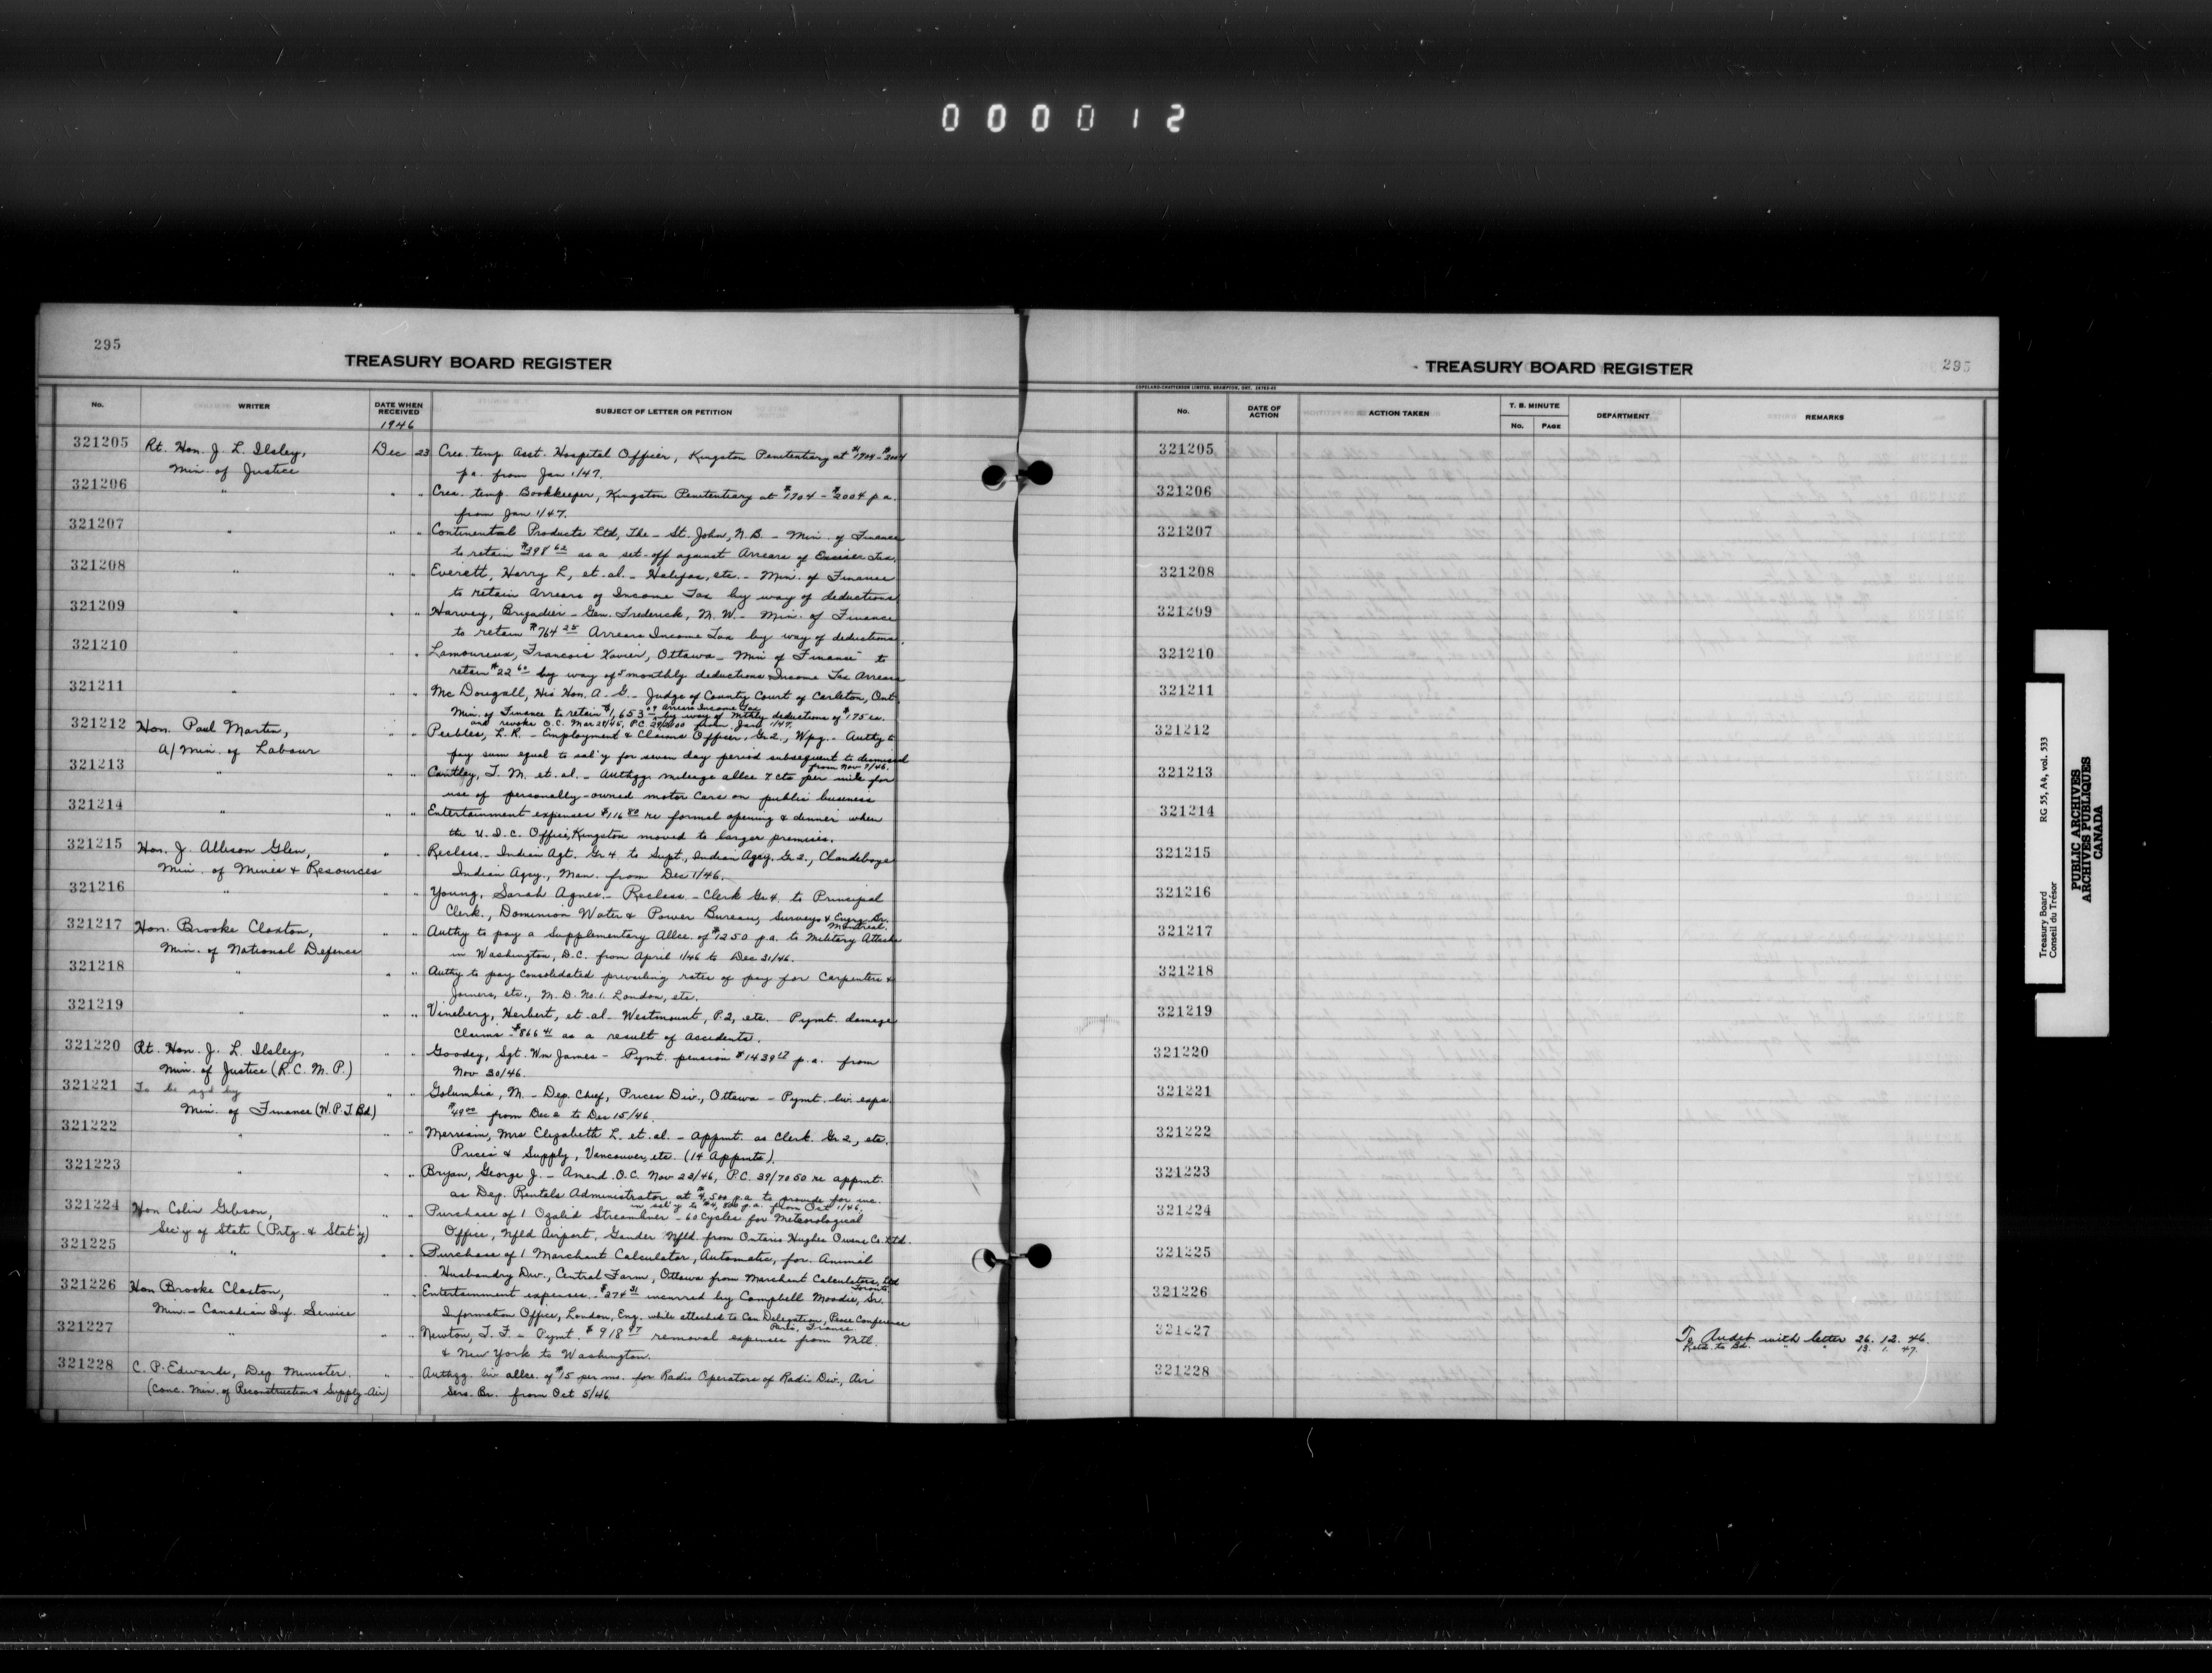 000012
295
TREASURY BOARD REGISTER
No.
WRITER
DATE WHEN RECEIVED
SUBJECT OF LETTER OR PETITION
1946
321205 Rt. Hon. J. L. Ilsley, Dec 23 Crea. temp. Asst. Hospital Officer, Kingston Penetentiary at $1704-$2004
Min. of Justice p.a. from Jan 1/47.
321206 " " " Crea. temp. Bookkeeper, Kingston Penetentiary at $1704 - $2004 p.a.
from Jan 1/47.
321207 " " " Continental Products Ltd, The - St. John, N.B. - Min. of Finance
to retain $398 62 as a set-off against Arrears of Excise Tax.
321208 " " " Everett, Harry L, et. al. - Halifax, etc. - Min. of Finance
to retain Arrears of Income Tax by way of deductions
321209 " " " Harvey, Brigadier - Gen. Frederick, M. W. - Min. of Finance
to retain $764 25 Arrears Income Tax by way of deductions.
321210 " " " Lamoureux, Francois Xavier, Ottawa - Min of Finance to
retain $22 60 by way of 5 monthly deductions Income Tax Arrears
321211 " " " Mc Dougall, His Hon. A. G. - Judge of County Court of Carleton, Ont.
Min. of Finance to retain $1,653 Arrears Income Tax by way of Mthly deductions of $175 ea.
and revoke O.C. Mar 29/45, P.C. from Jan 1/47.
321212 Hon. Paul Martin, " " Peebles, L. R. - Employment & Claims Officer, Gr 2., Wpg. - Authy to
A/Min. of Labour pay sum equal to sal'y for seven day period subsequent to dismissal
from Nov 7/46.
321213 " " " Cantley, T. M. et. al. - Authgg. mileage allce 7 cts per mile for
use of personally-owned motor cars on public business
321214 " " " Entertainment expenses $116 80 re formal opening & dinner when
the U. I. C. Office, Kingston moved to larger premises.
321215 Hon. J. Allison Glen, " " Reclass. - Indian Agt. Gr 4 to Supt., Indian Agcy. Gr 2., Clandeboye
Min. of Mines & Resources Indian Agcy., Man. from Dec 1/46.
321216 " " " Young, Sarah Agnes. - Reclass. - Clerk Gr 4. to Principal
Clerk., Dominion Water & Power Bureau, Surveys & Engrg. Br.
Montreal.
321217 Hon. Brooke Claxton, " " Authy to pay a Supplementary Allce. of $1250 p.a. to Military Attache
Min. of National Defence in Washington, D.C. from April 1/46 to Dec 31/46.
321218 " " " Authy to pay consolidated prevailing rates of pay for Carpenters &
Joiners, etc., M. D. No. 1. London, etc.
321219 " " " Vineberg, Herbert, et. al - Westmount, P.2, etc. - Pymt. damage
claims - $866 41 as a result of accidents.
321220 Rt. Hon. J. L. Ilsley, " " Goodey, Sgt. Wm James - Pymt. pension $1439 p.a. from
Min. of Justice (R. C. M. P.) Nov 30/46.
321221 To be sgd by " " Golumbia, M. - Dep. Chief, Prices Div., Ottawa - Pymt. liv. exps.
Min. of Finance (W. P. T. Bd) $49 00 from Dec 2 to Dec 15/46
321222 " " " Merriam, Mrs Elizabeth L. et. al. - Appmt. as Clerk. Gr 2, etc.
Prices & Supply, Vancouver, etc. (14 Appmts).
321223 " " " Bryan, George J. - Amend. O.C. Nov 23/46, P.C. 39/7050 re appmt.
as Dep. Rentals Administrator at $4,500 p.a. to provide for inc.
in sal'y to $4,800 p.a. from Oct 1/46.
321224 Hon Colin Gibson, " " Purchase of 1 Ozalid Streamliner - 60 Cycles for Meteorological
Sec'y of State (Prtg. & Stat'y) Office, Nfld Airport, Gander Nfld. from Ontario Hughes Owens Co. Ltd.
321225 " " " Purchase of 1 Marchant Calculator, Automatic, for Animal
Husbandry Div., Central Farm, Ottawa from Marchant Calculators Ltd
Toronto.
321226 Hon Brooke Claxton, " " Entertainment expenses - $274 31 incurred by Campbell Moodie, Sr.
Min. - Canadian Inf. Service Information Office, London, Eng. while attached to Can Delegation, Peace Conference
Paris, France
321227 " " " Newton, T. F. - Pymt. $918 97 removal expenses from Mtl.
& New York to Washington.
321228 C. P. Edwards, Dep. Minister. " " Authgg. liv allce. of $15 per mo. for Radio Operators of Radio Div., Air
(Conc. Min. of Reconstruction & Supply-Air) Serv. Br. from Oct 5/46
TREASURY BOARD REGISTER
295
COPELAND-CHATTERSON LIMITED, BRAMPTON, ONT.
No.
DATE OF ACTION
ACTION TAKEN
T. B. MINUTE
No.
PAGE
DEPARTMENT
REMARKS
321205
321206
321207
321208
321209
321210
321211
321212
321213
321214
321215
321216
321217
321218
321219
321220
321221
321222
321223
321224
321225
321226
321227 To Audit with letter 26. 12. 46.
Retd. to Bd. " " 13. 1. 47.
321228
Treasury Board RG 55, A4, vol. 533
Conseil du Trésor
PUBLIC ARCHIVES
ARCHIVES PUBLIQUES
CANADA